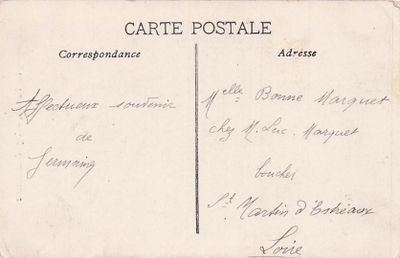 CARTE POSTALE
Correspondance
Adresse
Affectueux souvenir
de
Germaine
Melle Bonne Marquet
chez M. Luc. Marquet
boucher
St Martin d'Estréaux
Loire